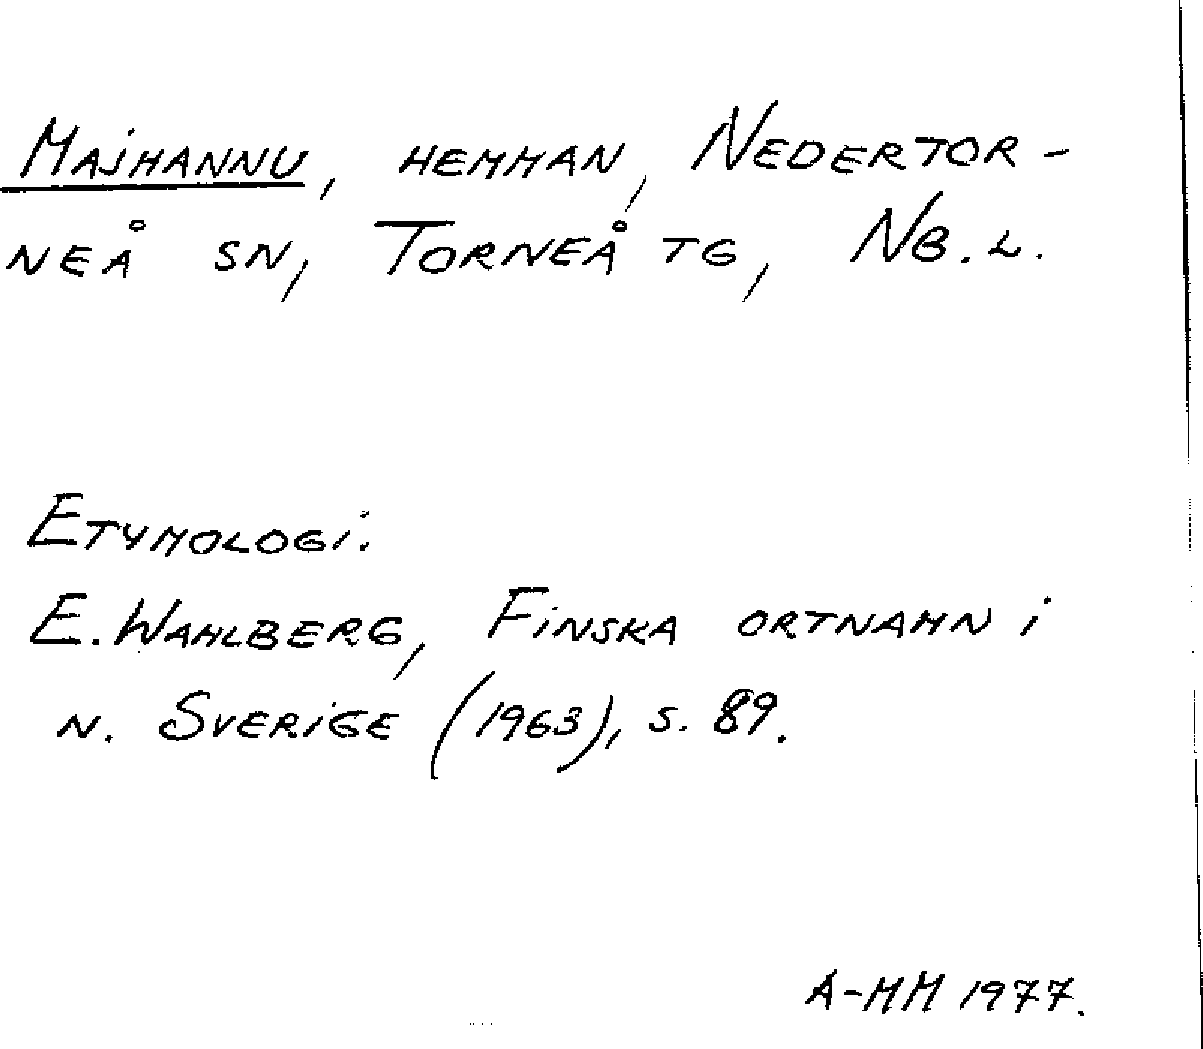 Majhannu, hemman, Nedertor-
neå sn, Torneå tg, Nb.l.
Etymologi:
E. Wahlberg, Finska ortnamn i
n. Sverige (1963), s. 89.
A-MM 1977.